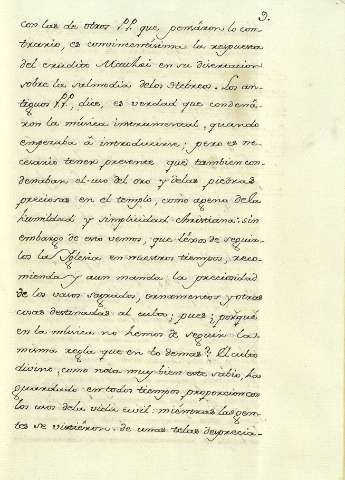 9.
con las de otros P.P. que, pensáron lo con-
trario, es convincentísima la respuesta
del erudito Mauhei en su disertacion
sobre la salmodia delos Hebreos. Los an-
tiguos P.P., dice, es verdad que condená-
ron la música instrumental, quando
empezaba á introducirse; pero es ne-
cesario tener presente que tambien con-
denaban el uso del oro y delas piedras
preciosas en el templo, como ageno dela
humildad y simplicidad Christiana: sin
embargo de eso vemos, que léxos de seguir-
los la Iglesia en nuestros tiempos, reco-
mienda y aun manda la preciosidad
de los vasos sagrados, ornamentos y otras
cosas destinadas al culto; pues ¿porqué
en la música no hemos de seguir la
misma regla que en lo demas? El culto
divino, como nota muy bien este sabio, ha
guardado en todos tiempos proporcion con
los usos dela vida civil: miéntras las gen-
tes se vistiéron de unas telas desprecia-